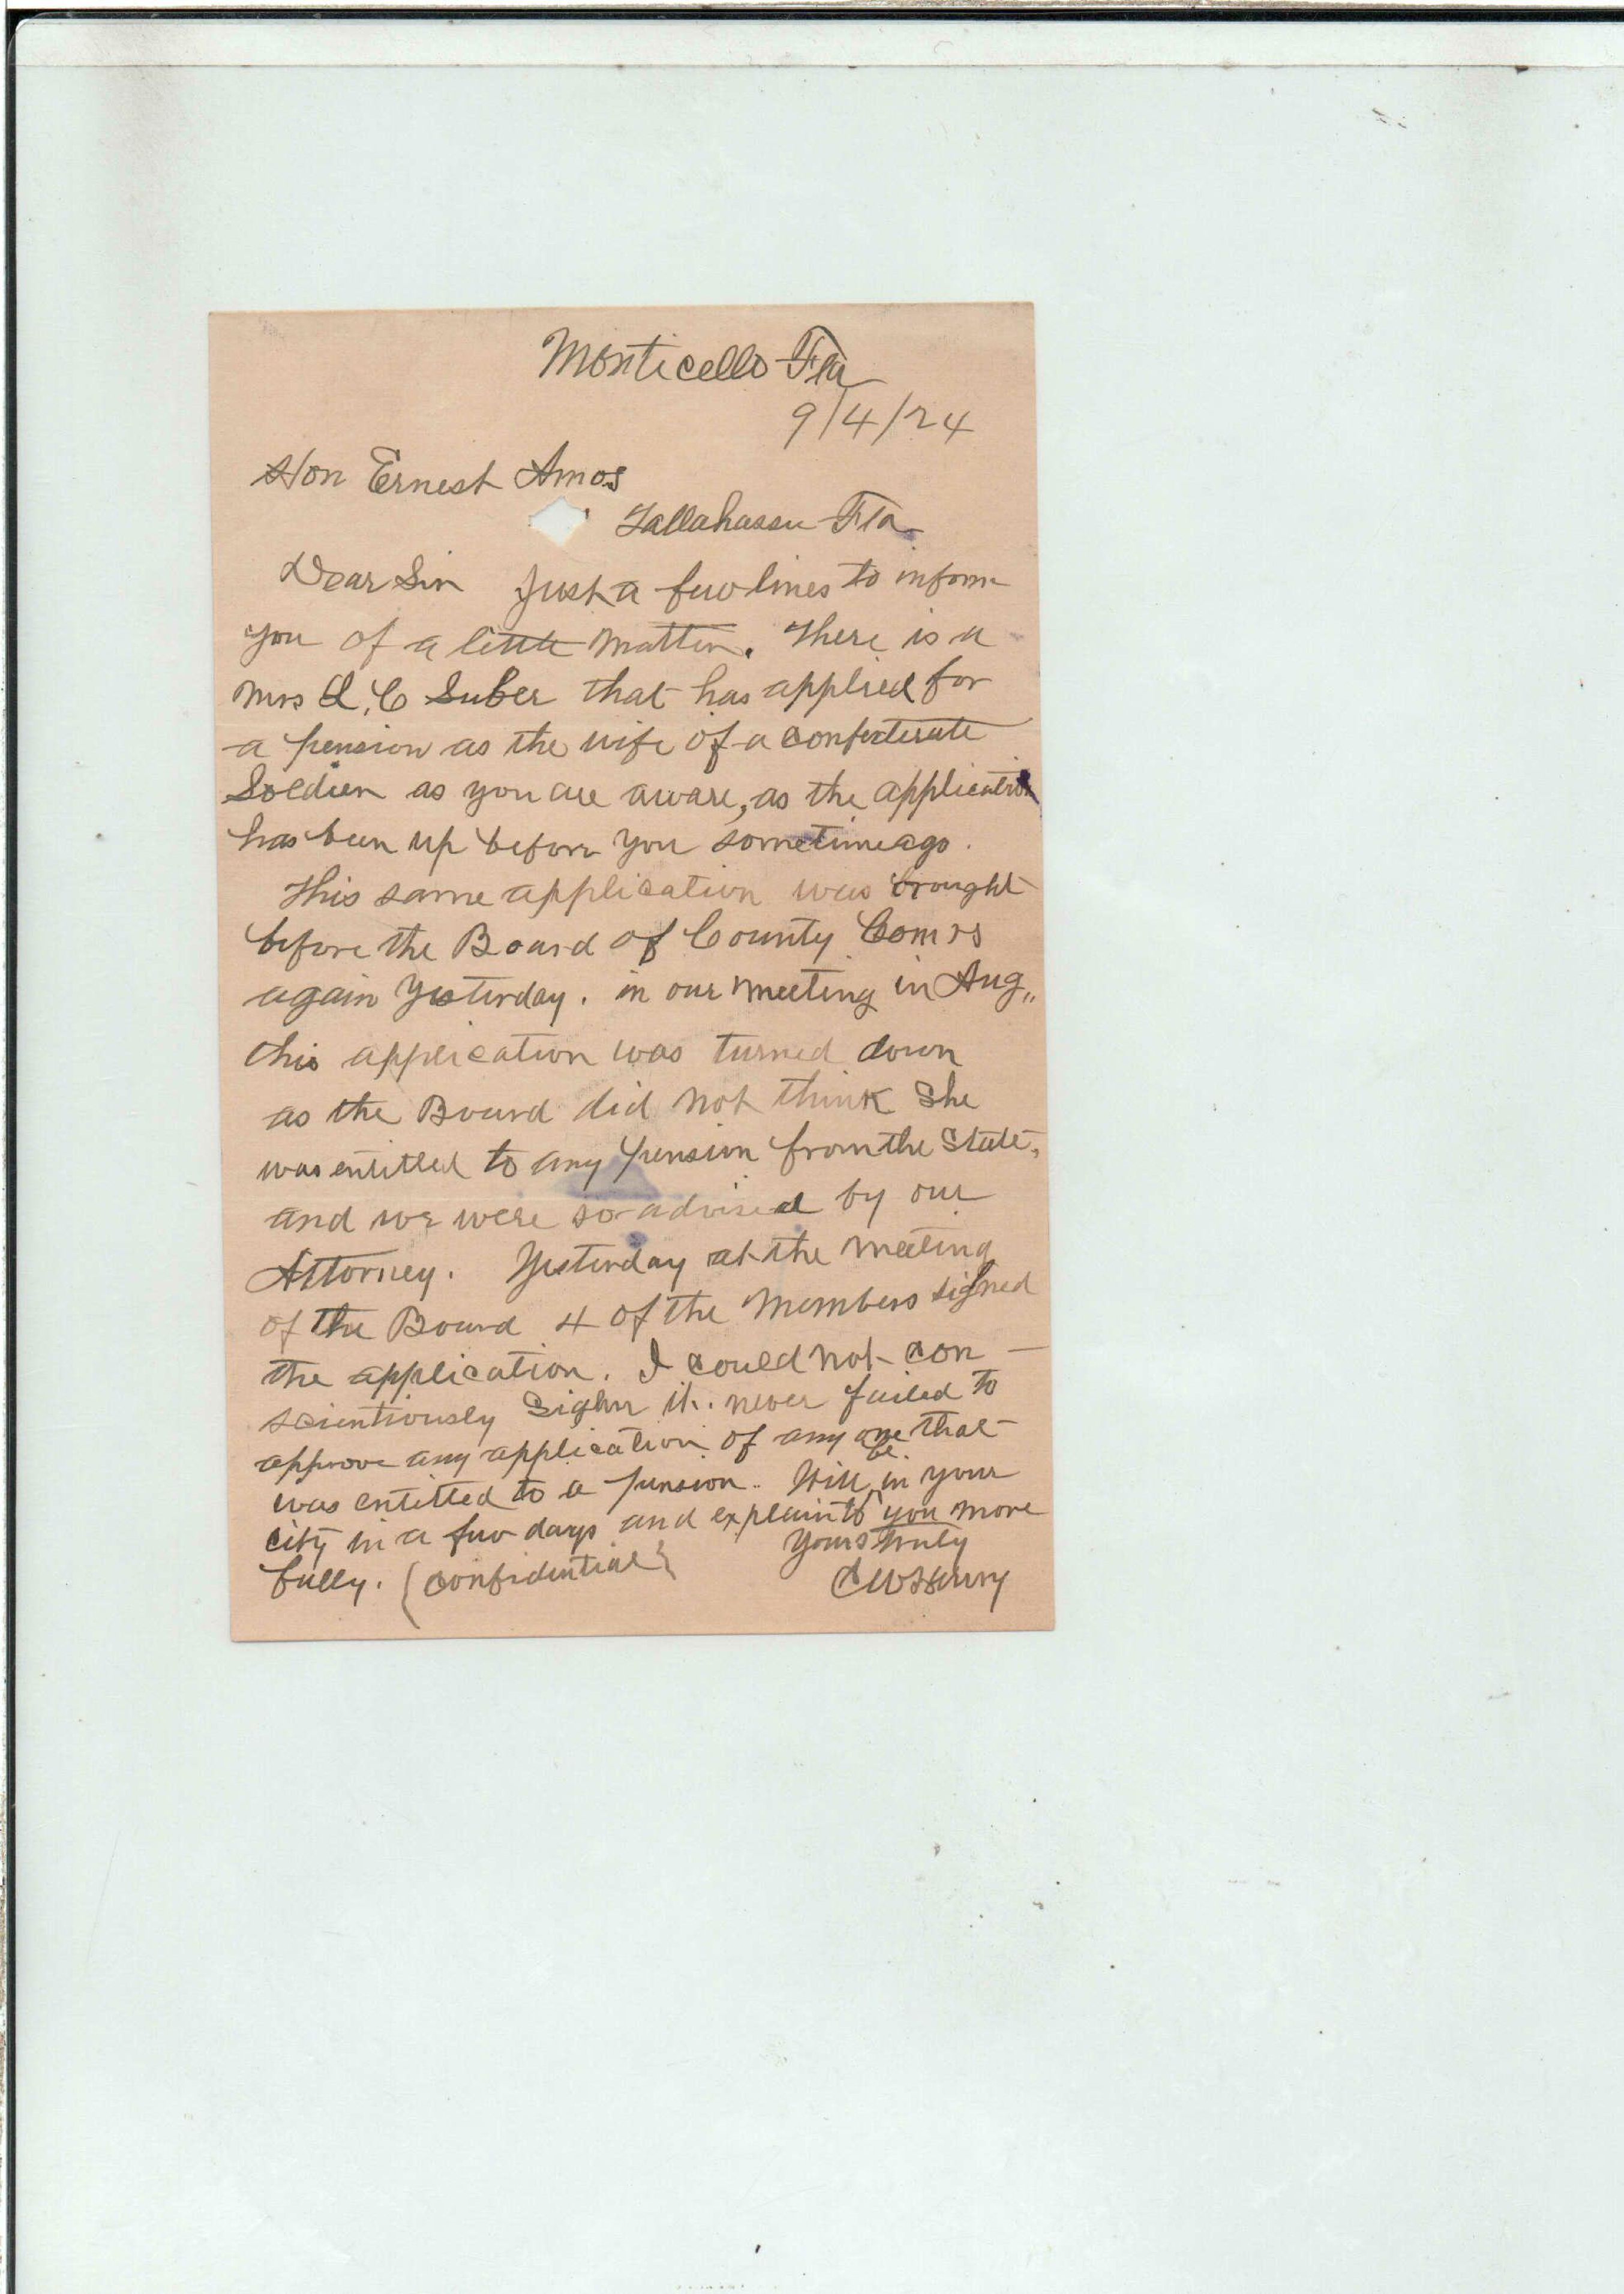 Monticello Fla
9/4/24
Hon Ernest Amos
Tallahassee Fla
Dear Sir Just a few lines to inform
you of a little matter. There is a
Mrs L. C Suber that has applied for
a pension as the wife of a confederate
Soldier as you are aware, as the application
has been up before you sometime ago.
This same application was brought
before the Board of County Comrs
again yesterday. in our meeting in Aug,,
this application was turned down
as the Board did not think She
was entitled to any pension from the State,
and we were so advised by our
Attorney. Yesterday at the meeting
of the Board 4 of the Members signed
the application. I could not con-
scientiously Sighn it. never failed to
approve any application of any one that
was entitled to a pension. Will be in your
city in a few days and explain to you more
fully. (confidential) Yours truly